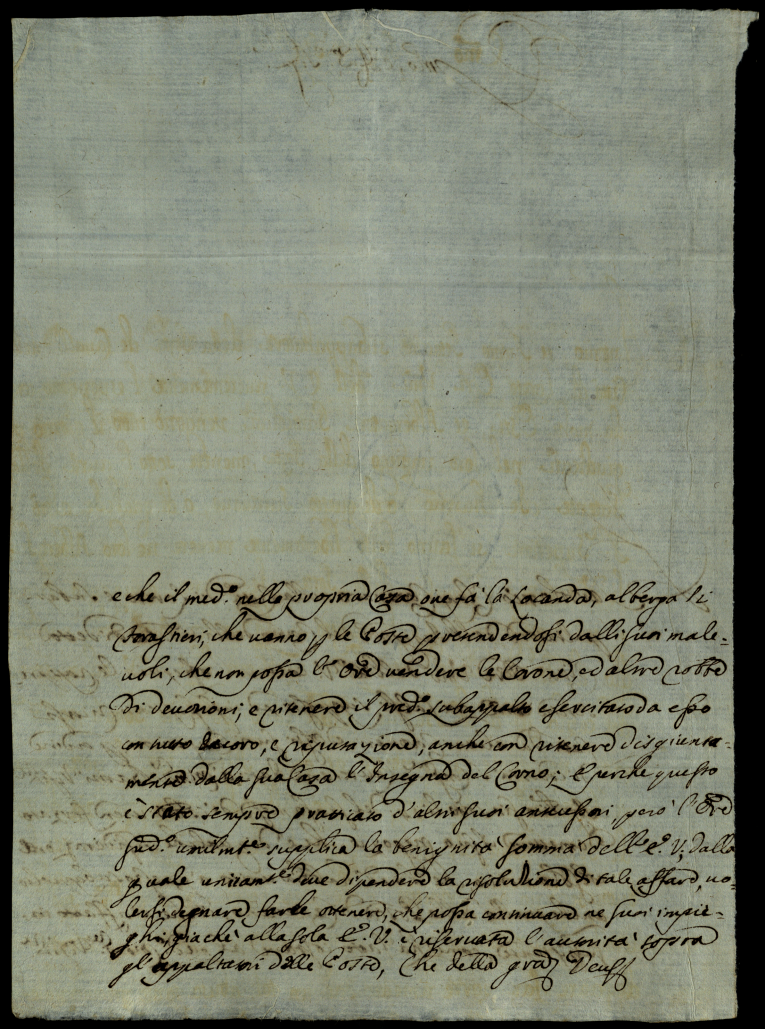 e che il med.º nella propria Casa, oue fà la Locanda, alberga li
forastieri, che uanno p le Poste, pretendendosi dalli suoi male-
uoli, che non possa l' Ore uendere le Corone, ed altre robbe
di deuozioni, e ritenere il pred.º subappalto esercitato da esso
con tutto decoro, e riputazione, anche con ritenere disgiunta-
mente dalla sua Casa l' Insegna del Corno; E perche questo
è stato sempre pratticato d' altri suoi antecessori, però l' Ore
sud.º umilmt.e supplica la benignità somma dell' E. V., dalla
quale unicamt.e deue dipendere la risoluzione di tale affare, uo-
lersi degnare farle ottenere, che possa continuare ne suoi impie-
ghi, giache alla sola E. V. è riseruata l' autorità sopra
gl' appaltatori delle Poste, Che della graz